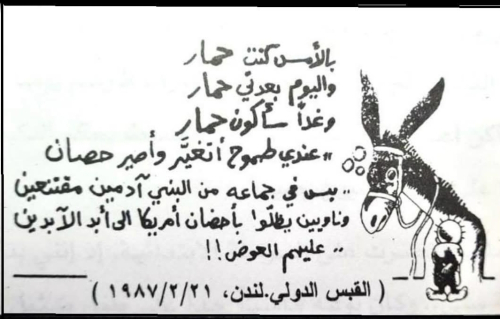 بالأمس كنت حمار
واليوم بعدني حمار
وغداً سأكون حمار
،، عندي طموح أتغيَّر وأصير حصان
،، بس في جماعه من البني آدمين مقتنعين
وناويين يظلّوا بأحضان أمريكا الى أبد الآبدين
عليهم العوض !!
( القبس الدولي.لندن، ١٩٨٧/٢/٢١ )